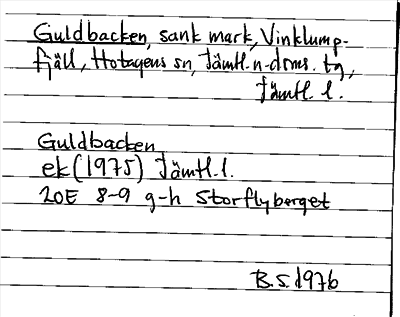 Guldbacken, sank mark, Vinklump-
fjäll, Hotagens sn, Jämtl. n. doms. tg,
Jämtl. l.
Guldbacken
ek (1975) Jämtl. l.
20E 8-9 g-h Storflyberget
B.S. 1976